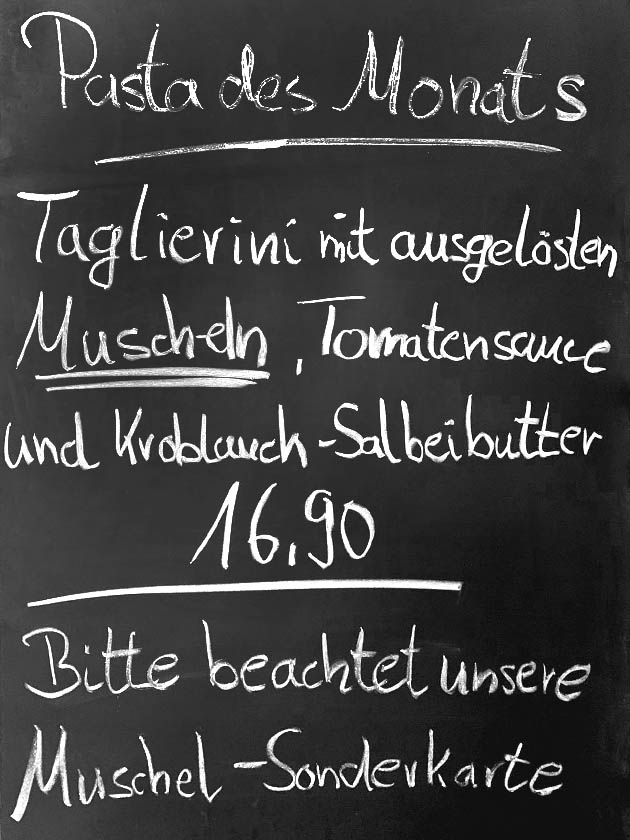 Pasta des Monats
Taglierini mit ausgelösten
Muscheln, Tomatensauce
und Knoblauch-Salbeibutter
16,90
Bitte beachtet unsere
Muschel-Sonderkarte